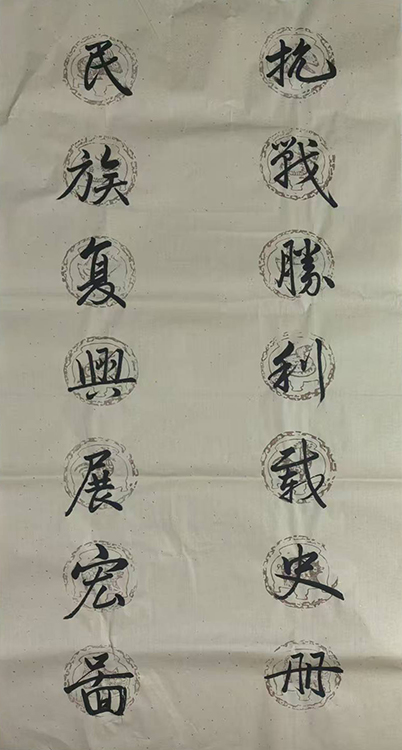 抗戰勝利載史册
民族复興展宏啚